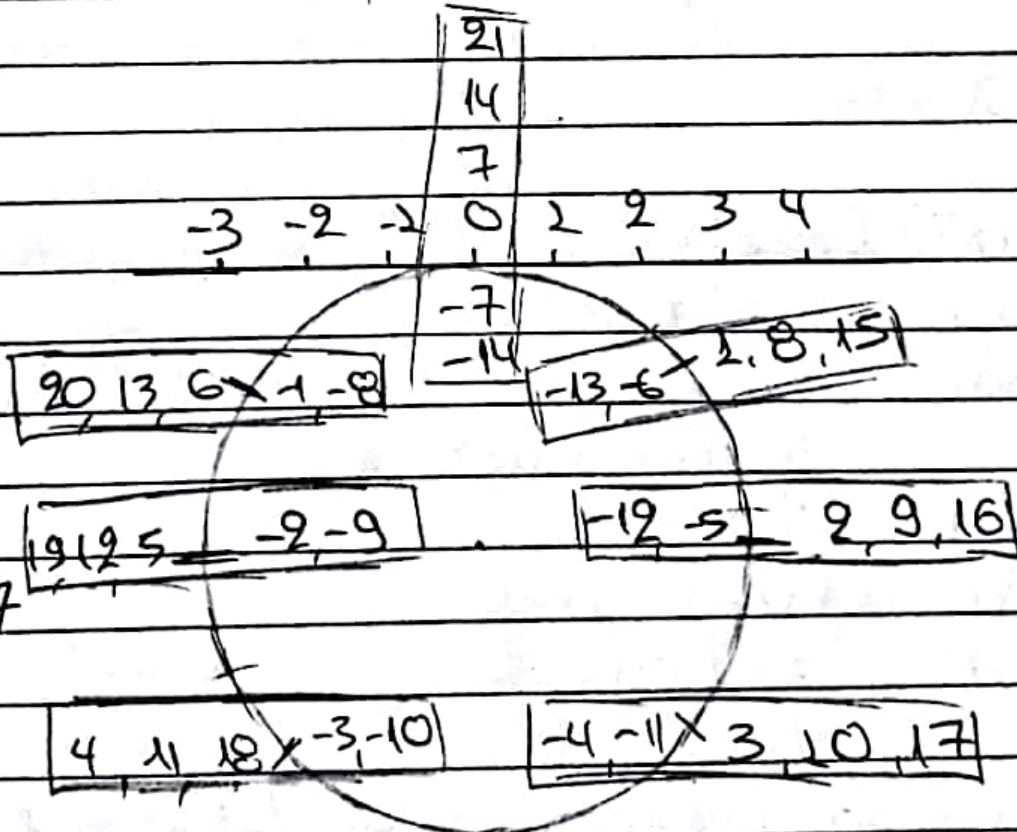 21
14
7
-3 -2 -1 0 1 2 3 4
-7
-14
20, 13, 6 -1, -8
-13, -6 1, 8, 15
19, 12, 5 -2, -9
-12, -5 2, 9, 16
7
4, 11, 18 -3, -10
-4, -11 3, 10, 17